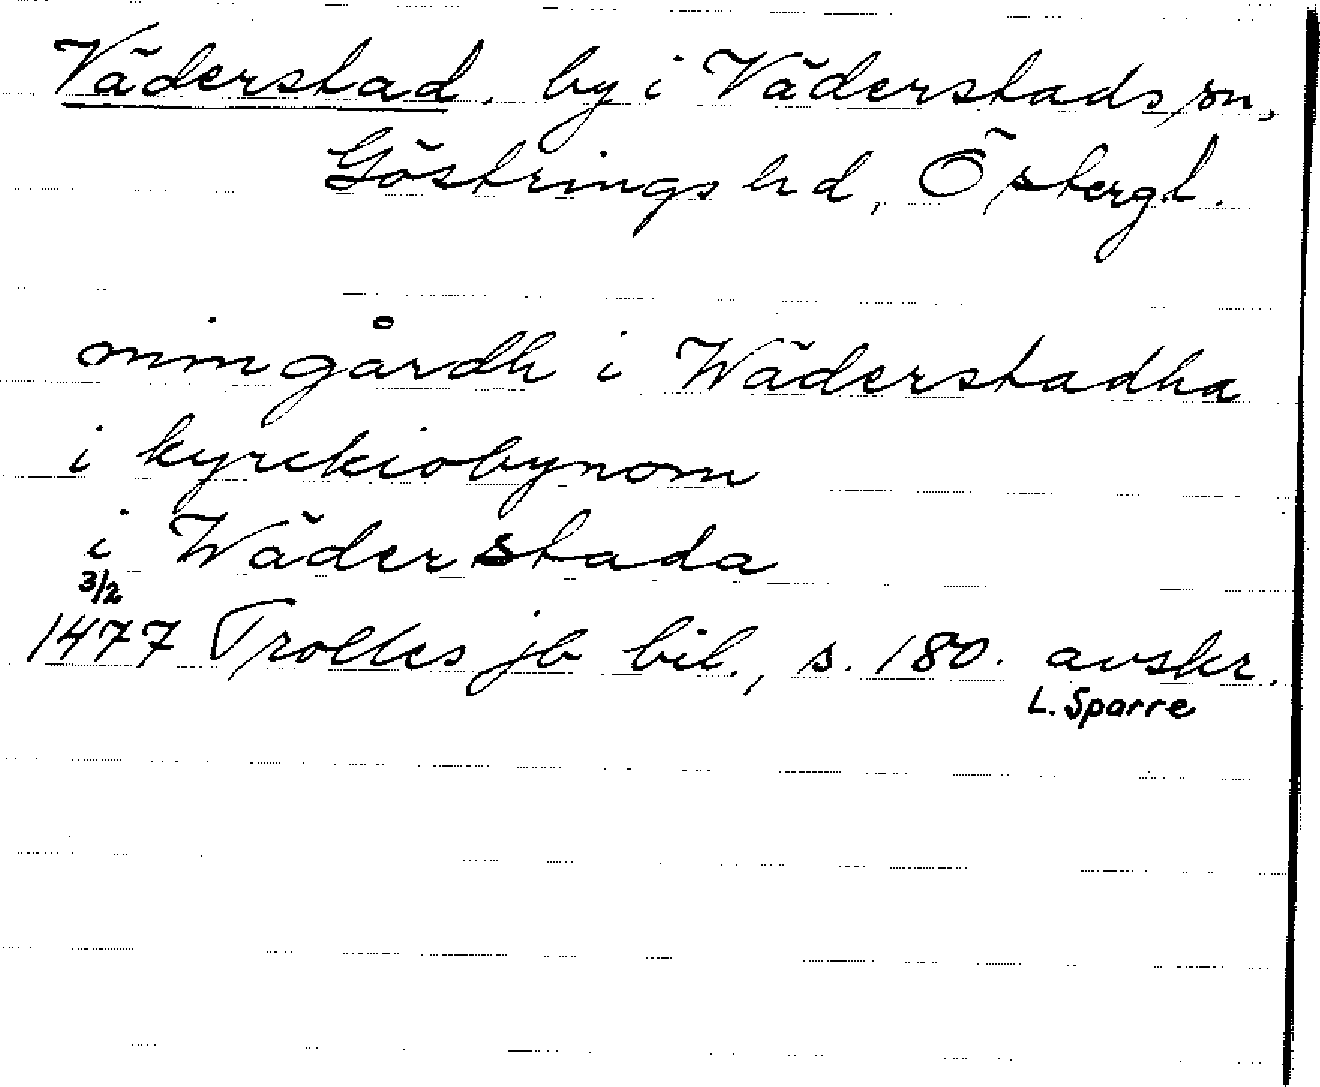 Väderstad, by i Väderstads sn,
Göstrings hd, Östergl.
min gårdh i Wäderstadha
i kyrckiobynom
i Wäderstada
3/2
1477 Trolles jb bil., s. 180. avskr.
L. Sparre